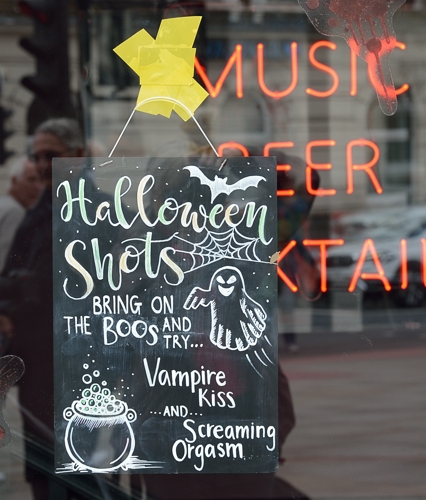 MUSIC
BEER
KTAIL
Halloween
Shots
BRING ON
THE BOOS AND
TRY...
Vampire
Kiss
...AND...
Screaming
Orgasm